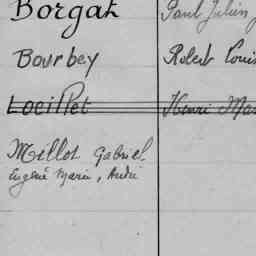 Borgak Paul Julien
Bourbey Robert Louis
Loeillet Henri
Millot Gabriel
Eugené Marie, André